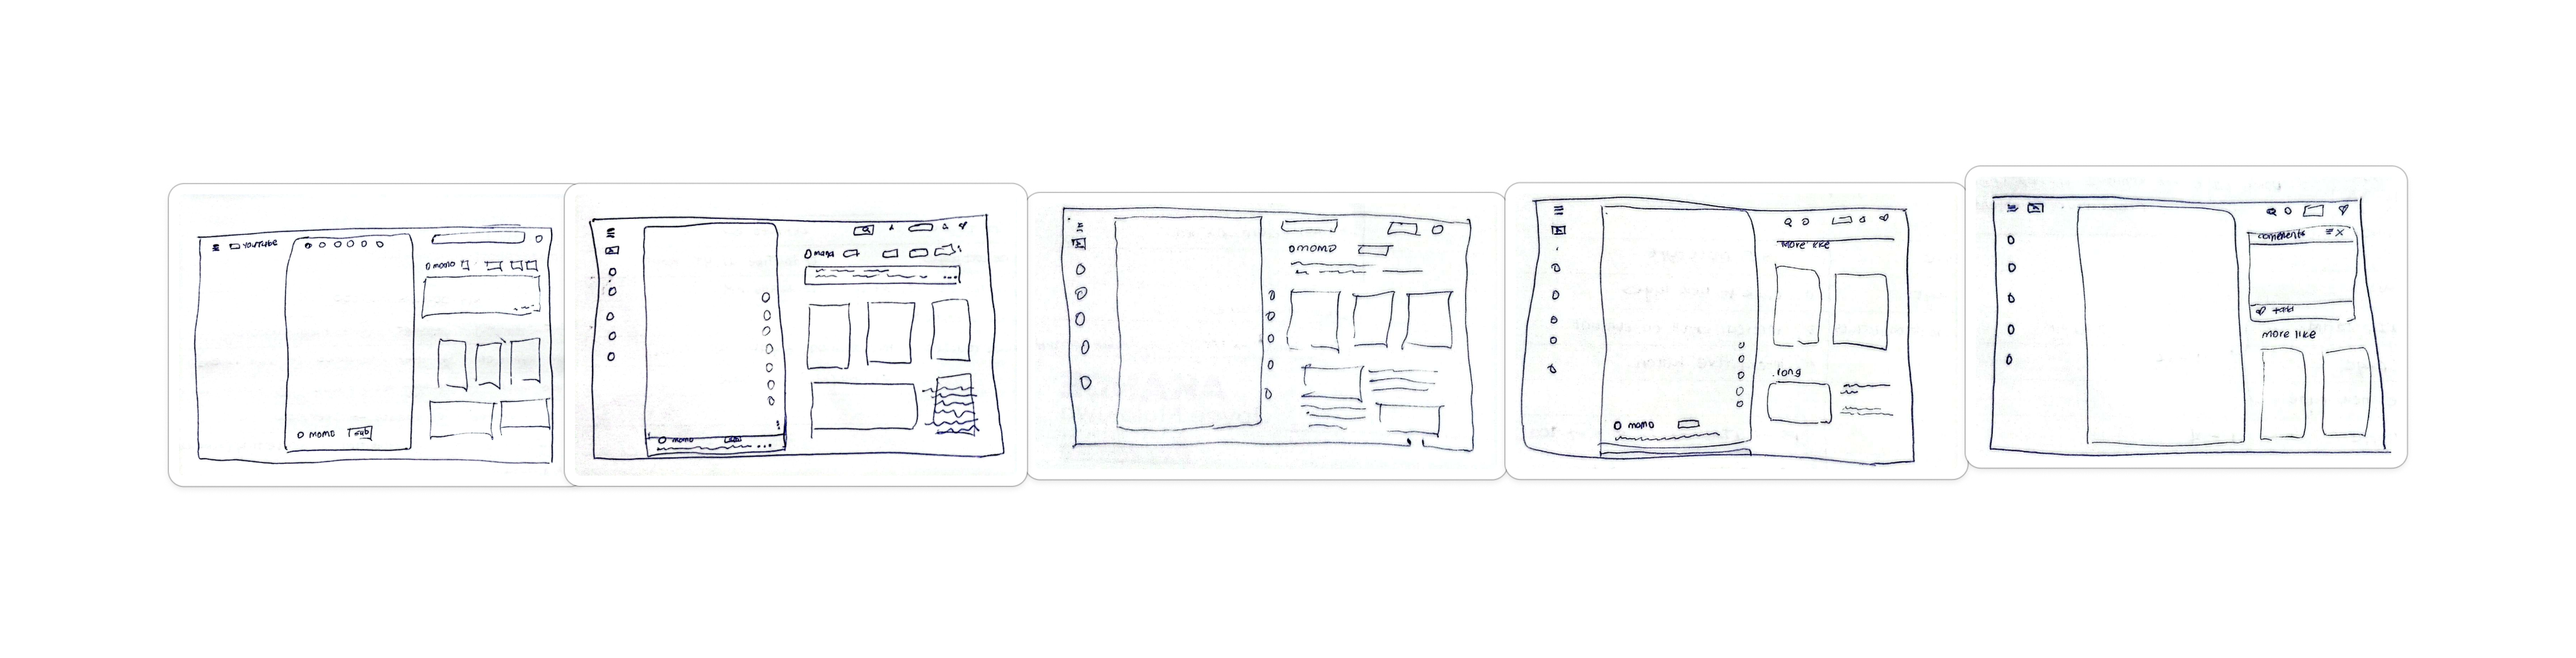 YouTube
momo
momo
sub
momo
momo
momo
More like
long
momo
comments
more like